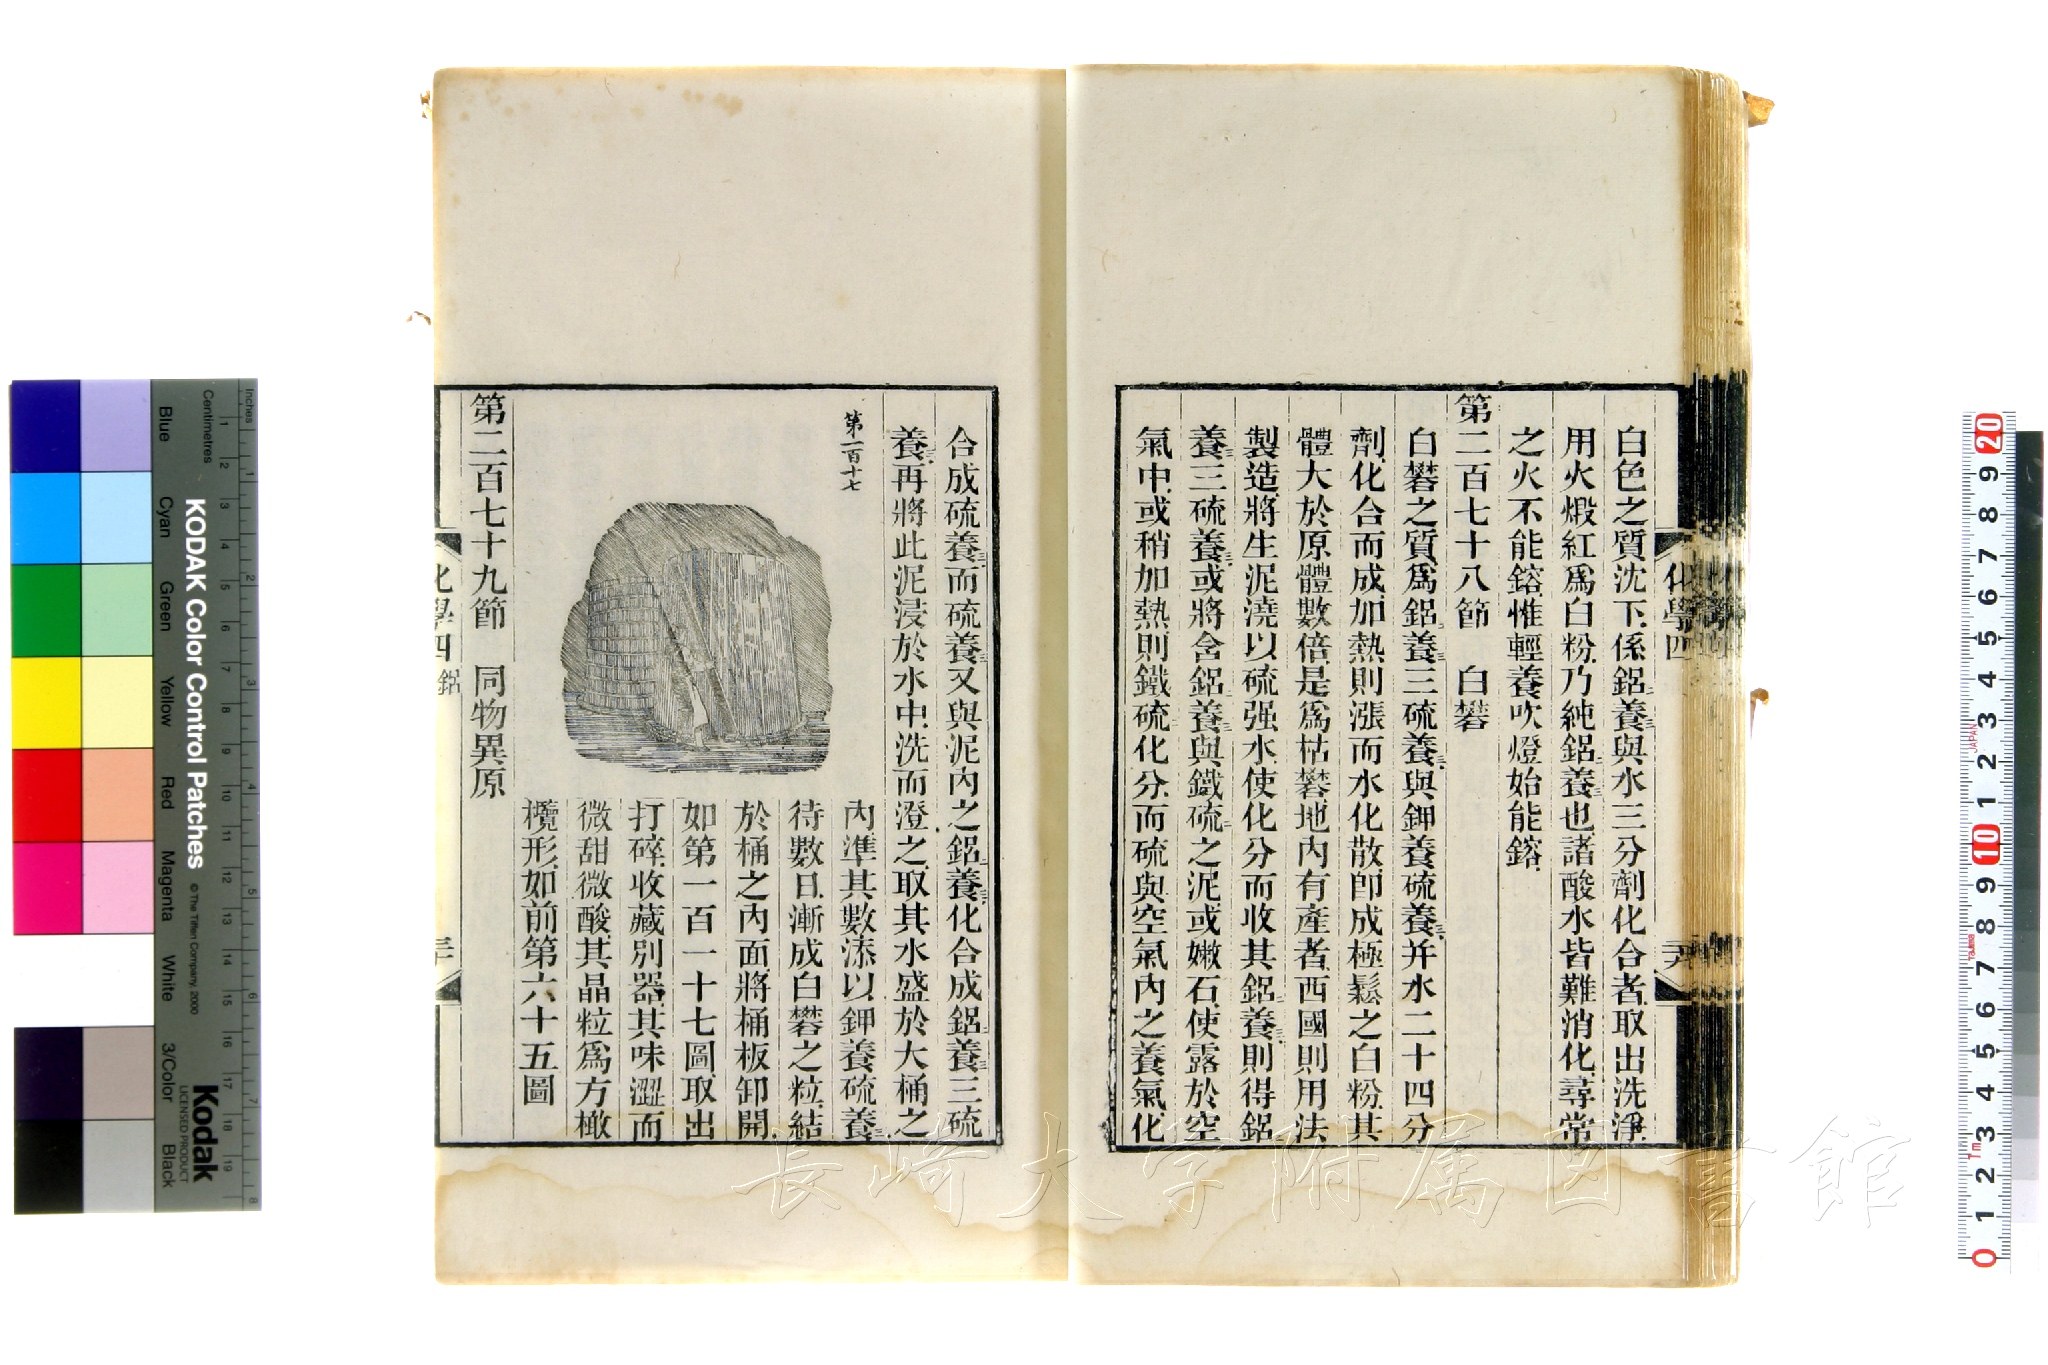 白色之質沈下係鋁養與水三分劑化合者取出洗淨
用火煅紅爲白粉乃純鋁養也諸酸水皆難消化尋常
之火不能鎔惟輕養吹燈始能鎔
第二百七十八節 白礬
白礬之質爲鋁養三硫養與鉀養硫養并水二十四分
劑化合而成加熱則漲而水化散卽成極鬆之白粉其
體大於原體數倍是爲枯礬地內有產者西國則用法
製造將生泥澆以硫强水使化分而收其鋁養則得鋁
養三硫養或將含鋁養與鐵硫之泥或嫩石使露於空
氣中或稍加熱則鐵硫化分而硫與空氣內之養氣化
化學四
合成硫養而硫養又與泥內之鋁養化合成鋁養三硫
養再將此泥浸於水中洗而澄之取其水盛於大桶之
第一百十七
內準其數添以鉀養硫養
待數日漸成白礬之粒結
於桶之內面將桶板卸開
如第一百一十七圖取出
打碎收藏別器其味澀而
微甜微酸其晶粒爲方橄
欖形如前第六十五圖
第二百七十九節 同物異原
化學四 鋁
長崎大学附属図書館
KODAK Color Control Patches
© The Tiffen Company, 2000
Kodak
LICENSED PRODUCT
Inches
Centimetres
Blue
Cyan
Green
Yellow
Red
Magenta
White
3/Color
Black
JAPAN